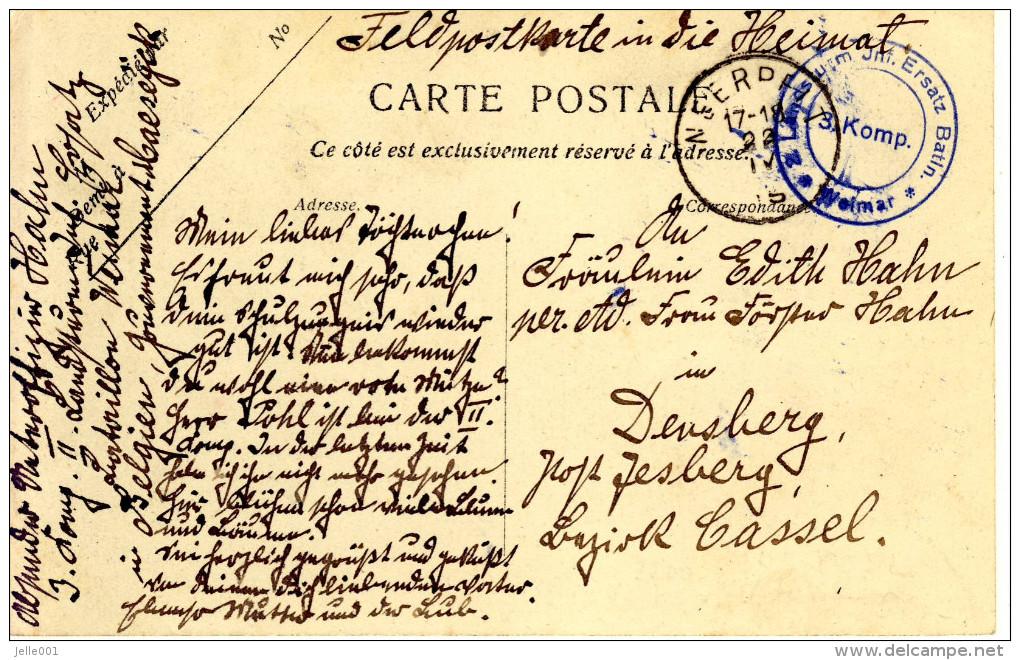 Feldpostkarte in die Heimat
No
CARTE POSTALE
Ce côté est exclusivement réservé à l'adresse.
Adresse.
Correspondance
Expédiée
NEERPELT
17-18
22
IV
15
Landsturm Inf. Ersatz Batln.
3. Komp.
* Weimar *
Mein liebes Töchterchen!
Es freut mich sehr, daß
dein Schulzeugnis wieder
gut ist. Nun bekommst
du wohl eine rote Mütze?
Herr Pohl ist bei der II.
Komp. In der letzten Zeit
habe ich ihn nicht mehr gesehen.
Hier blühen schon viele Blumen
und Bäume.
Sei herzlich gegrüßt und geküßt
von deinem dich liebenden Vater.
Ebenso Mutter und der Bub.
An
Fräulein Edith Hahn
per. Ad. Frau Förster Hahn
in
Densberg,
Post Jesberg,
Bezirk Cassel.
Absender Unteroffizier Hahn
3. Komp. II. Landsturm Inf. Ersatz
Bataillon Weimar
in Belgien, Gouvernement Maeseyck
jelle001
delcampe.net